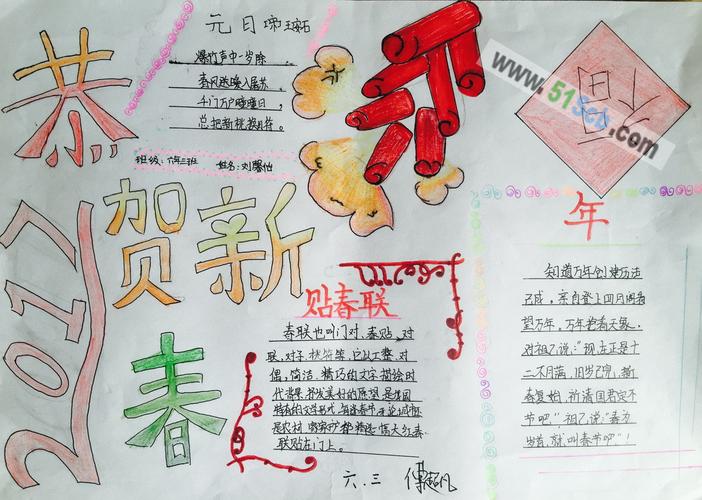 恭
贺新
春
2017
元日 王安石
爆竹声中一岁除
春风送暖入屠苏
千门万户曈曈日,
总把新桃换旧符。
班级:六年三班 姓名:刘馨怡
www.51Scb.com
年
知道万年创建历法
已成,亲自登上日月阁看
望万年,万年指着天象,
对祖乙说:“现在正是十
二个月满,旧岁已完,新
春复始,祈请国君定个
节吧”,祖乙说:“春为
岁首,就叫春节吧”!
贴春联
春联也叫门对、春贴、对
联、对子、桃符等,它以工整、对
偶、简洁、精巧的文字描绘时
代背景,抒发美好的愿望,是我国
特有的文学形式,每逢春节,无论城市还
是农村,家家户户都精选一幅大红春
联贴在门上。
六.三